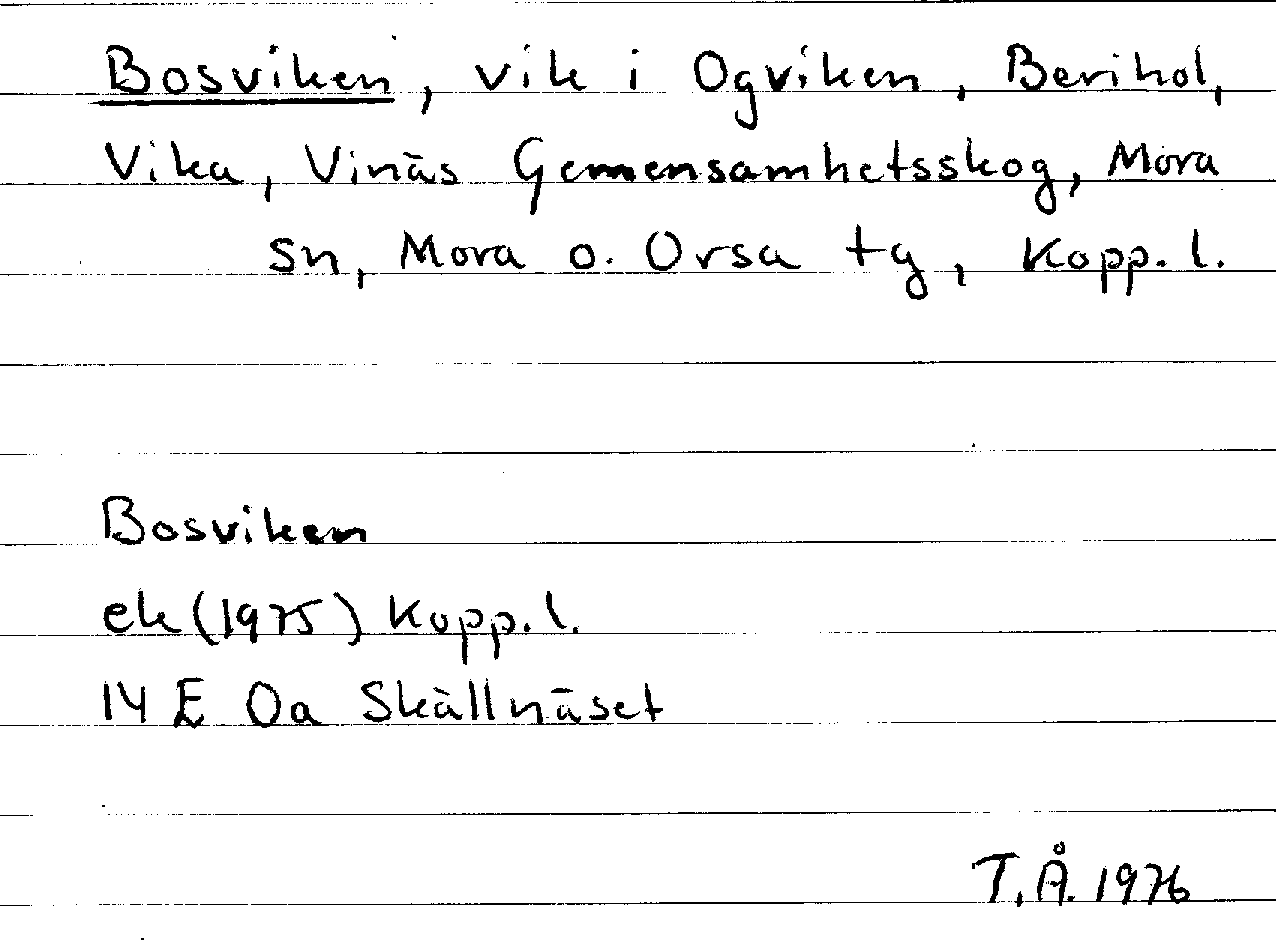 Bosviken, vik i Ogviken, Berihol,
Vika, Vinäs Gemensamhetsskog, Mora
sn, Mora o. Orsa tg, Kopp. l.
Bosviken
ek (1975) Kopp. l.
14 E 0a Skällnäset
T. Å. 1976